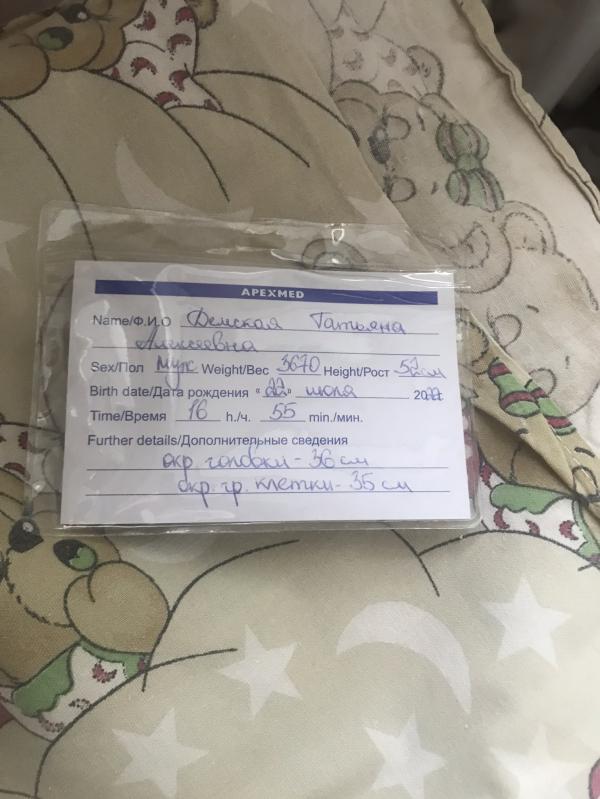 APEXMED
Name/Ф.И.О Демская Татьяна
Алексеевна
Sex/Пол муж Weight/Вес 3670 Height/Рост 52 см
Birth date/Дата рождения «22» июля 2022
Time/Время 16 h./ч. 55 min./мин.
Further details/Дополнительные сведения
окр. головки - 36 см
окр. гр. клетки - 35 см